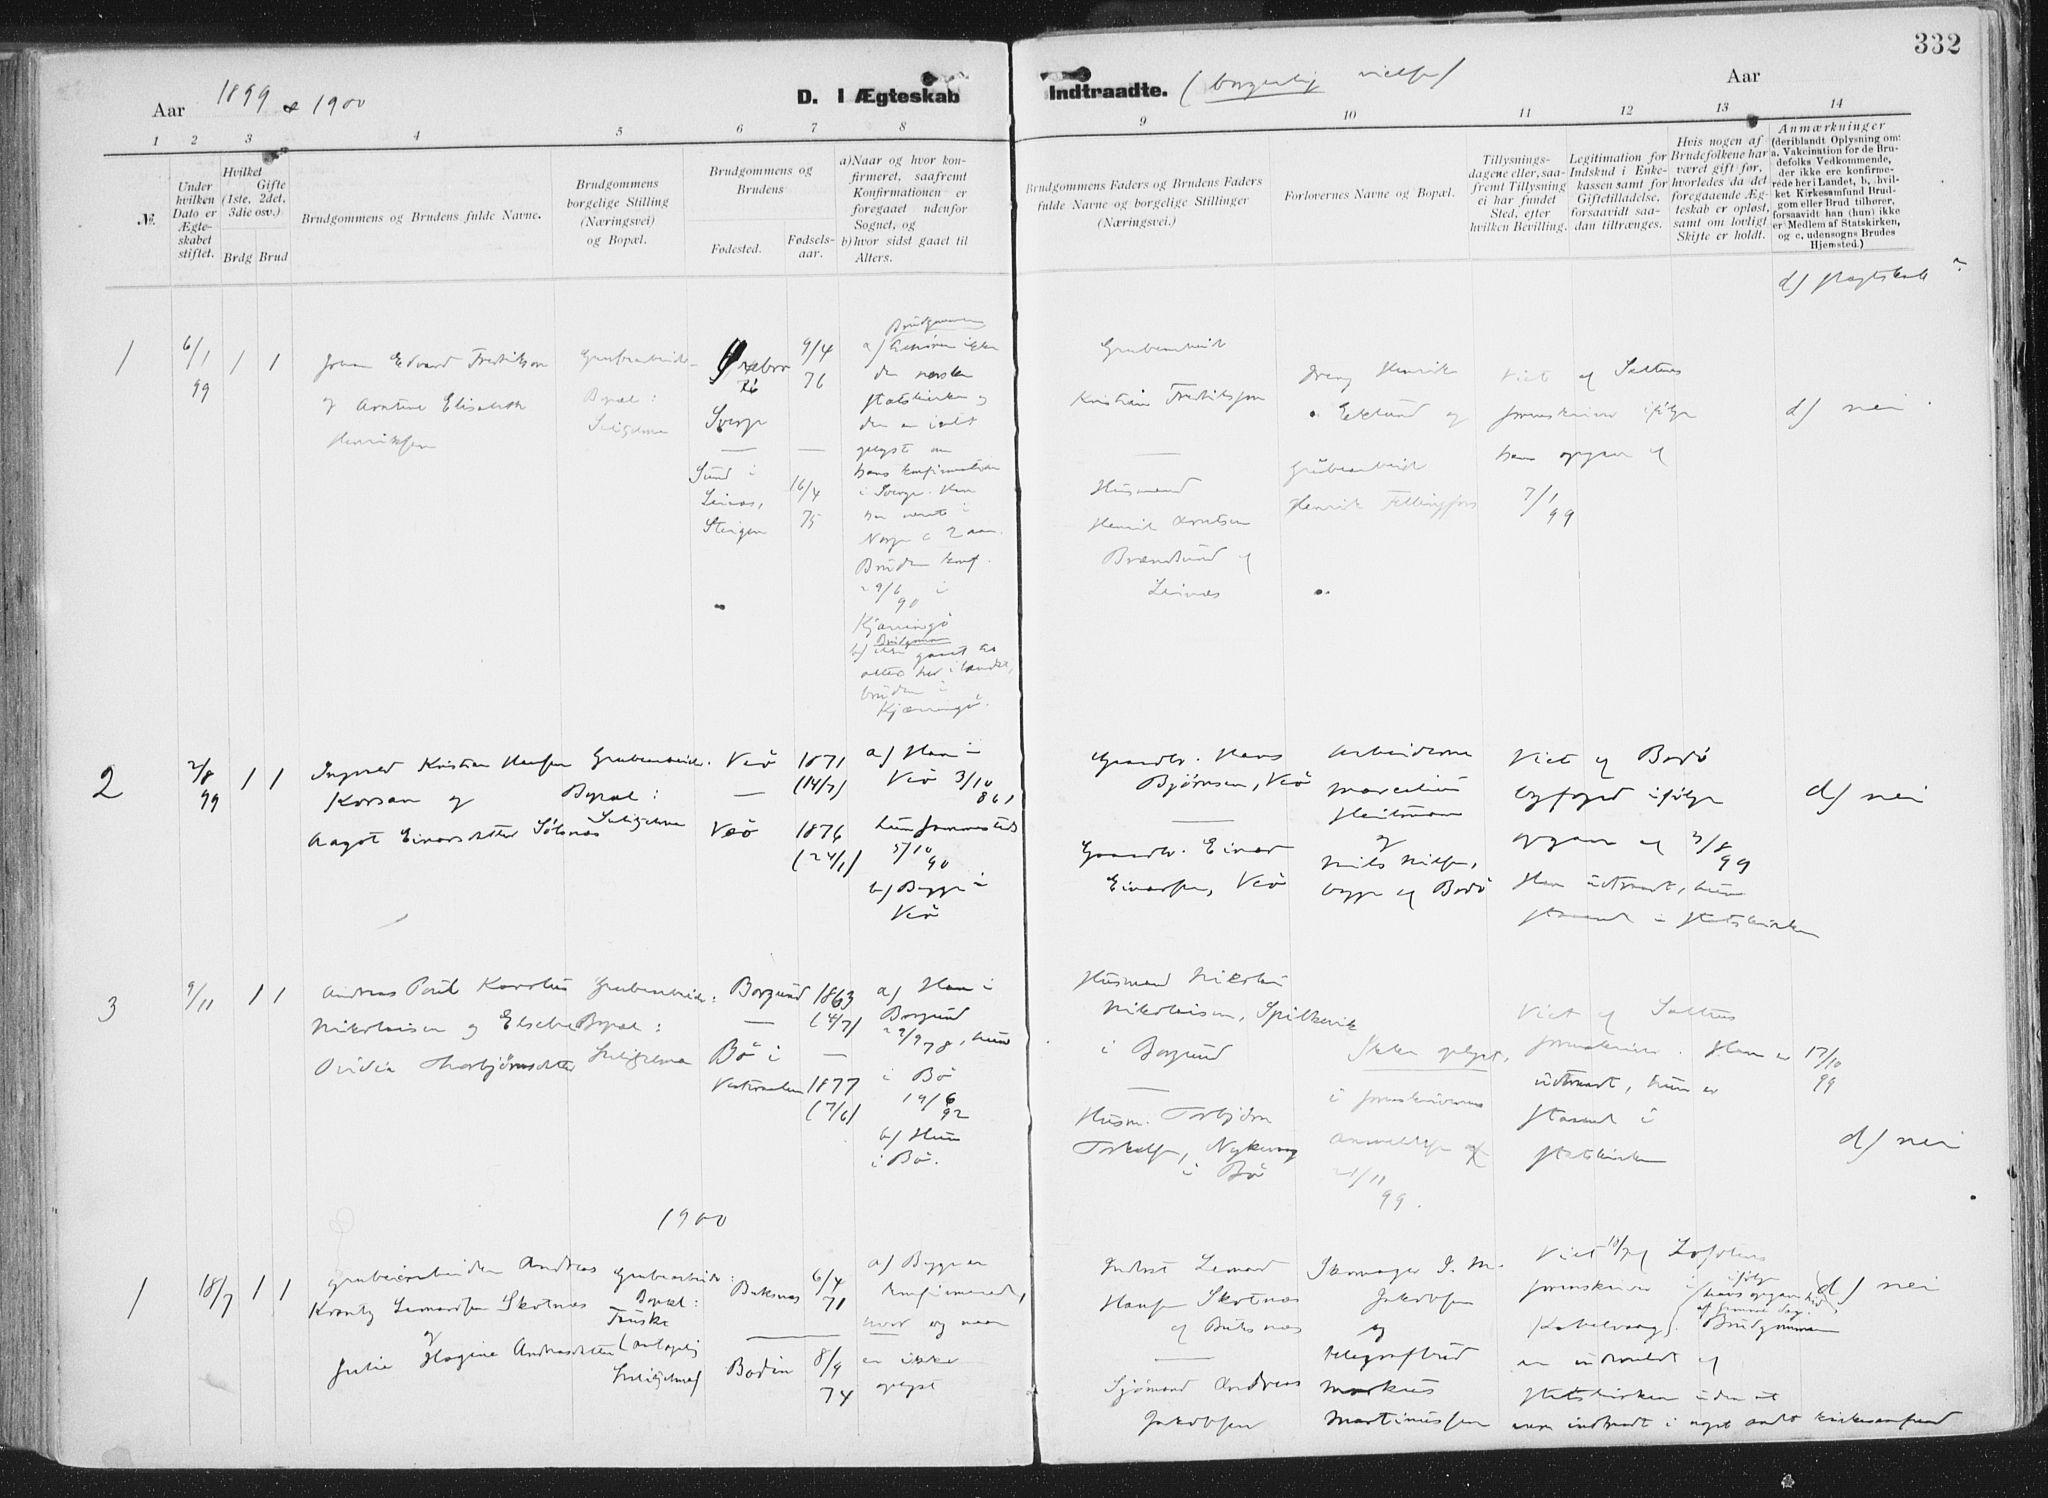 332
Aar 1899 & 1900
D. I Ægteskab Indtraadte. (borgerlig vielse)
Aar
1 2 3 4 5 6 7 8 9 10 11 12 13 14
№.
Under hvilken Dato er Ægteskabet stiftet.
Hvilket Gifte (1ste, 2det, 3die osv.)
Brdg Brud
Brudgommens og Brudens fulde Navne.
Brudgommens borgelige Stilling (Næringsvei) og Bopæl.
Brudgommens og Brudens
Fødested.
Fødselsaar.
a) Naar og hvor konfirmeret, saafremt Konfirmationen er foregaaet udenfor Sognet, og
b) hvor sidst gaaet til Alters.
Brudgommens Faders og Brudens Faders fulde Navne og borgelige Stillinger (Næringsvei.)
Forlovernes Navne og Bopæl.
Tillysningsdagene eller, saafremt Tillysning ei har fundet Sted, efter hvilken Bevilling.
Legitimation for Indskud i Enkekassen samt for Giftetilladelse, forsaavidt saadan tiltrænges.
Hvis nogen af Brudefolkene har været gift før, hvorledes da det foregaaende Ægteskab er opløst, samt om lovligt Skifte er holdt.
Anmærkninger (deriblandt Oplysning om: a. Vakcination for de Brudefolks Vedkommende, der ikke ere konfirmerede her i Landet, b, hvilket Kirkesamfund Brudgom eller Brud tilhører, forsaavidt han (hun) ikke er Medlem af Statskirken, og c. udensogns Brudes Hjemsted.)
d) Slægtskab?
1
6/1
99
1 1
Johan Edvard Fredrikson
og Arntine Elisabeth
Henriksen
Grubearbeider
Bopæl:
Sulitjelma
Ørebro
Sverge
9/4
76
Sund i
Leinæs,
Steigen
16/4
75
Brudgommen
a) tilhører ikke
den norske
statskirken og
der er intet
oplyst om
hans konfirmation
i Sverge. Han
har været i
Norge c 2 aar.
Bruden konf.
29/6
90 i
Kjærringø
b) Brudgommen
ikke gaaet til
alters her i landet,
bruden i
Kjærringø.
Grubearbeid
Kristian Fredriksson
Husmand
Henrik Arntsen
Brændsund af
Leinæs
Dreng Henrik
Eklund og
Grubearbeid
Henrik Fellingfors
Viet af Saltens
sorenskriver ifølge
hans opgave af
7/1
99
d) nei
2
2/8
99
1 1
Ingvald Kristian Hansen
Korsan og
Aagot Einarsdatter Sølsnæs
Grubearbeider.
Bopæl:
Sulitjelma
Veø
1871
(14/7)
Veø
1876
(24/1)
a) Han i
Veø 3/10
86,
hun sammesteds
5/10
90
b) Begge i
Veø
Gaardbr. Hans
Bjørnsen, Veø
Gaardbr. Einar
Einarsen, Veø
Arbeiderne
Marcelius
Heitmann
og
Nils Nilsen,
begge af Bodø
Viet af Bodø
byfoged ifølge
opgave af 3/8
99
Han udtraadt, hun
staaende i statskirken
d) nei
3
9/11
1 1
Andreas Poul Karolius
Nikolaisen og Elsebe
Ovidia Thorbjørnsdatter
Grubearbeider:
Bopæl:
Sulitjelma
Borgund
1863
(4/7)
Bø i
Vesteraalen
1877
(7/6)
a) Han i
Borgund
29/9 78, hun
i Bø
19/6
92
b) Hun
i Bø.
Husmand Nikolai
Nikolaisen, Spilkevik
i Borgund
Husm. Torbjørn
Torkelsen, Nykvaag
i Bø
Ikke oplyst,
i sorenskriverens
anmeldelse af
21/11
99.
Viet af Saltens
sorenskriver. Han er
udtraadt, hun er
staaende i
statskirken
17/10
99
d) nei
1900
1
18/7
1 1
Grubearbeider Andreas
Krantz Leonardsen Skotnæs
og
Julie Hagine Andreasdatter
Grubearbeider:
Bopæl:
Fauske
(antagelig
Sulitjelma)
Buksnæs
6/4
71
Bodin
8/9
74
a) Begge er
konfirmerede,
hvor og naar
er ikke
oplyst
Inderst Leonard
Hansen Skotnæs
af Buksnæs
Sjømand Andreas
Jakobsen
Skomager J. M.
Jakobsen
og
telegrafbud
Markus
Martinussen
Viet 18/7 af Lofotens
sorenskriver i
Kabelvaag
(ifølge hans opgave hid af samme dag).
Brudgommen
er udmeldt af
statskirken uden at
være indtraadt i noget andet kirkesamfund
d) nei